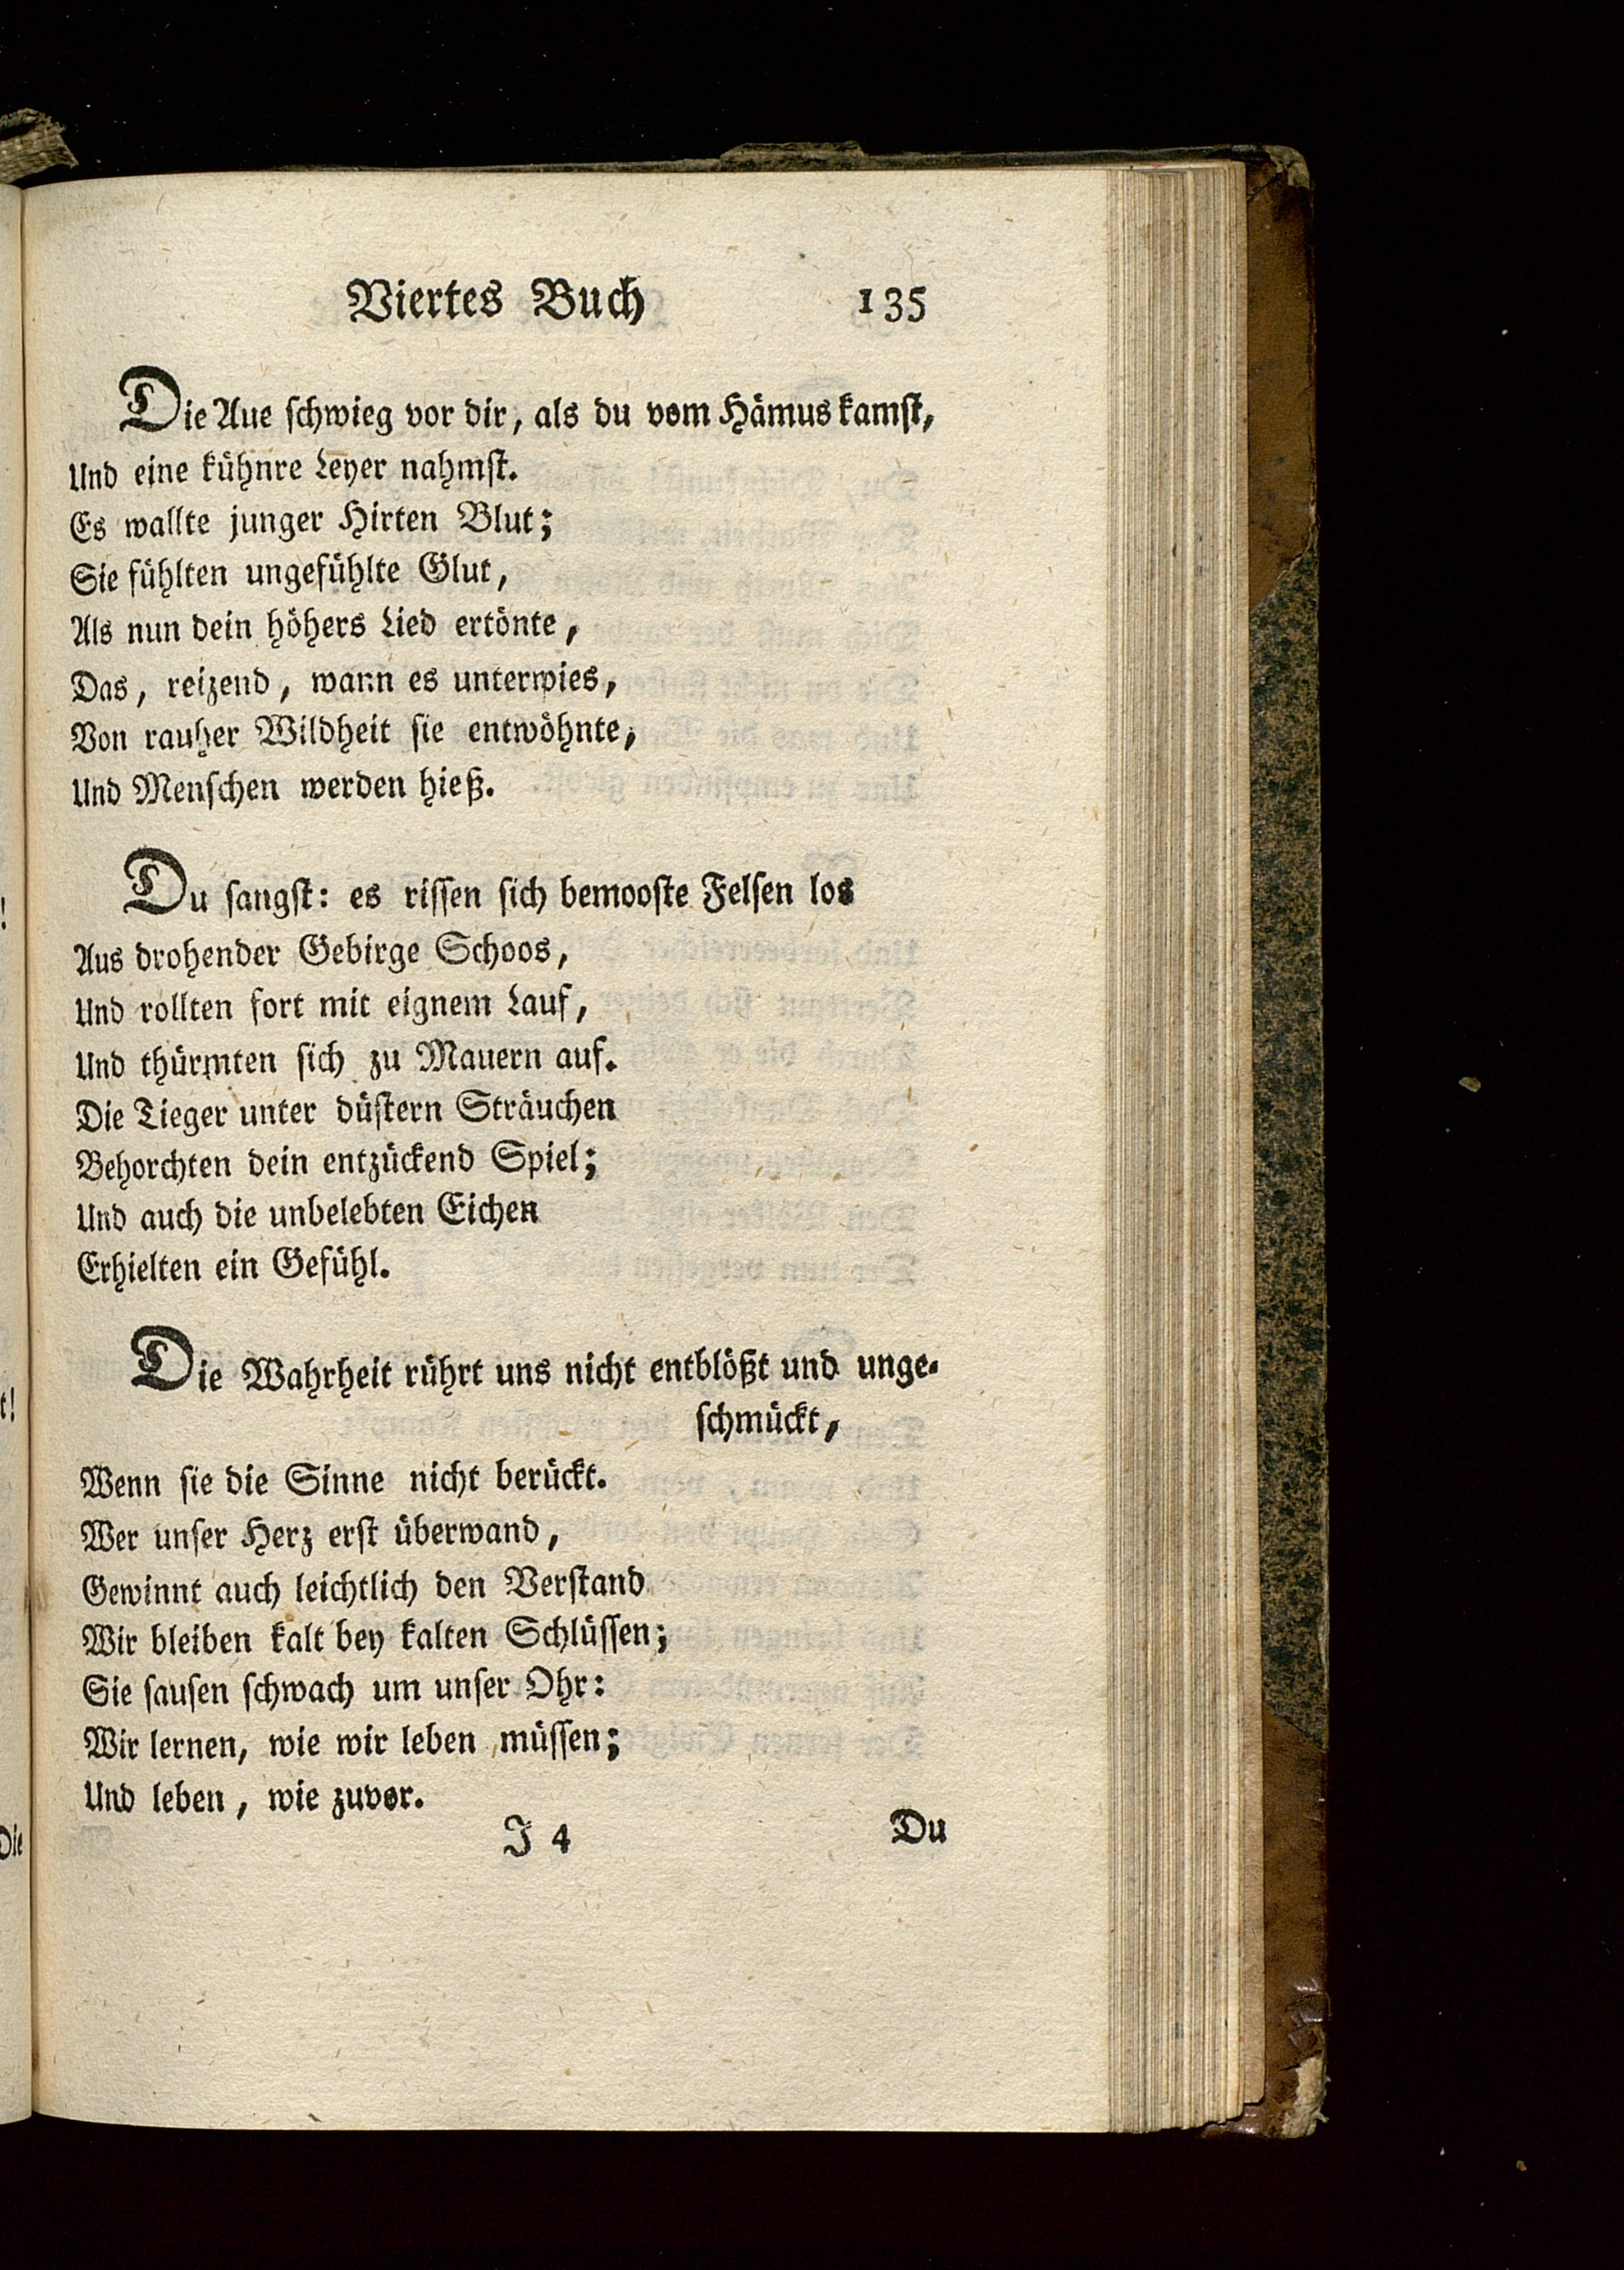 Viertes Buch 135
Die Aue ſchwieg vor dir, als du vom Hämus kamſt,
Und eine kühnre Leyer nahmſt.
Es wallte junger Hirten Blut;
Sie fühlten ungefühlte Glut,
Als nun dein höhers Lied ertönte,
Das, reizend, wann es unterwies,
Von rauher Wildheit ſie entwöhnte,
Und Menſchen werden hieß.
Du ſangſt: es riſſen ſich bemooſte Felſen los
Aus drohender Gebirge Schoos,
Und rollten fort mit eignem Lauf,
Und thürmten ſich zu Mauern auf.
Die Tieger unter düſtern Sträuchen
Behorchten dein entzückend Spiel;
Und auch die unbelebten Eichen
Erhielten ein Gefühl.
Die Wahrheit rührt uns nicht entblößt und unge-
ſchmückt,
Wenn ſie die Sinne nicht berückt.
Wer unſer Herz erſt überwand,
Gewinnt auch leichtlich den Verſtand
Wir bleiben kalt bey kalten Schlüſſen;
Sie ſauſen ſchwach um unſer Ohr:
Wir lernen, wie wir leben müſſen;
Und leben, wie zuvor.
J 4 Du
Die